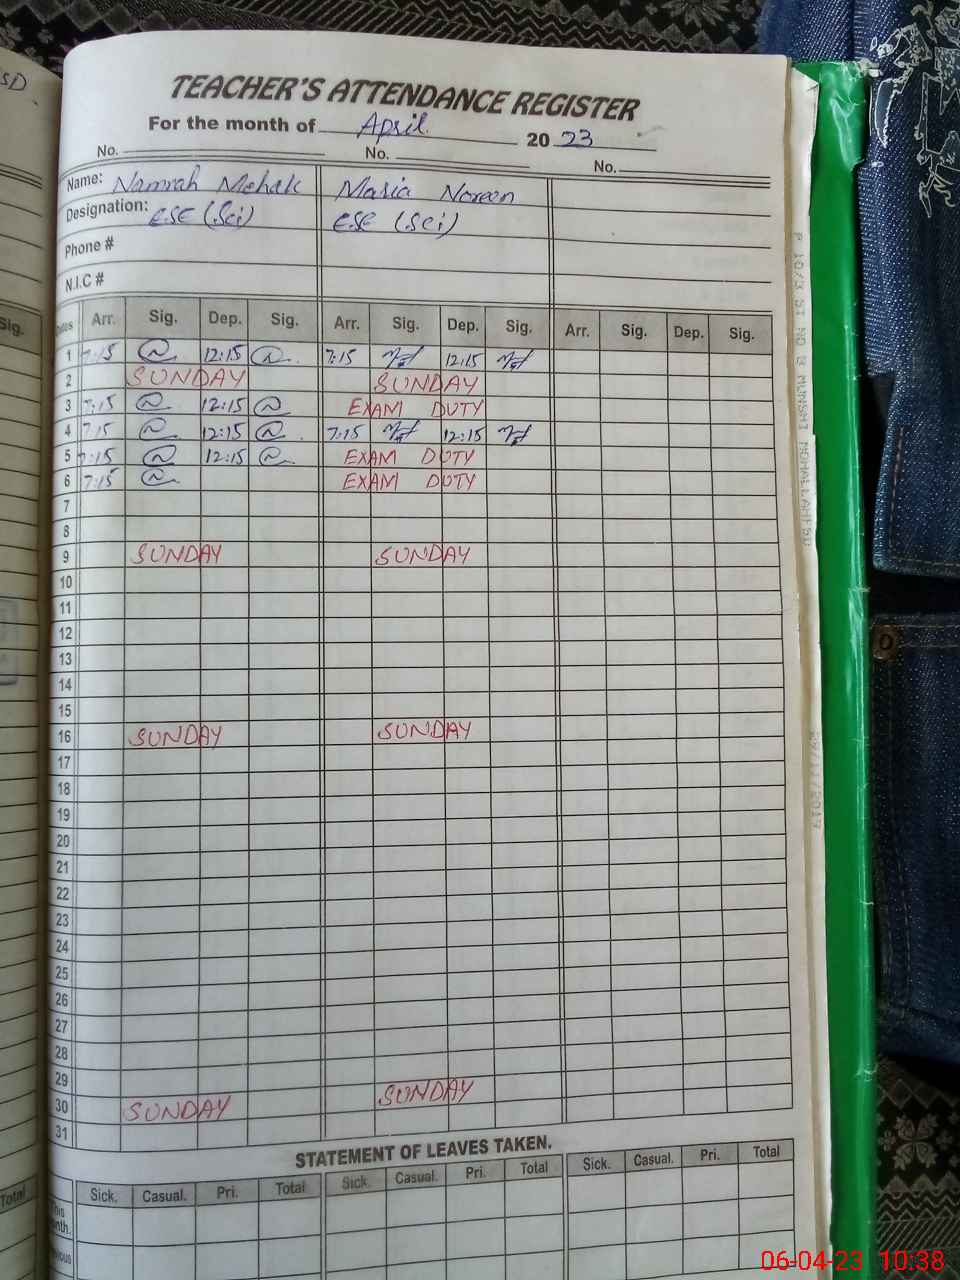 SD
TEACHER'S ATTENDANCE REGISTER
For the month of April 20 23
No. No. No.
Name: Namrah Mehak Maria Noreen
Designation: ESE (Sci) ESE (Sci)
Phone #
N.I.C #
Sig. Dates Arr. Sig. Dep. Sig. Arr. Sig. Dep. Sig. Arr. Sig. Dep. Sig.
1 7:15 12:15 7:15 12:15
2 SUNDAY SUNDAY
3 7:15 12:15 EXAM DUTY
4 7:15 12:15 7:15 12:15
5 7:15 12:15 EXAM DUTY
6 7:15 EXAM DUTY
7
8
9 SUNDAY SUNDAY
10
11
12
13
14
15
16 SUNDAY SUNDAY
17
18
19
20
21
22
23
24
25
26
27
28
29
30 SUNDAY SUNDAY
31
STATEMENT OF LEAVES TAKEN.
Total Sick. Casual. Pri. Total Sick. Casual. Pri. Total Sick. Casual. Pri. Total
This
nth.
vious
P 10/3 ST NO 3 MUNSHI MOHALLAH FSD
29/11/2017
06-04-23 10:38